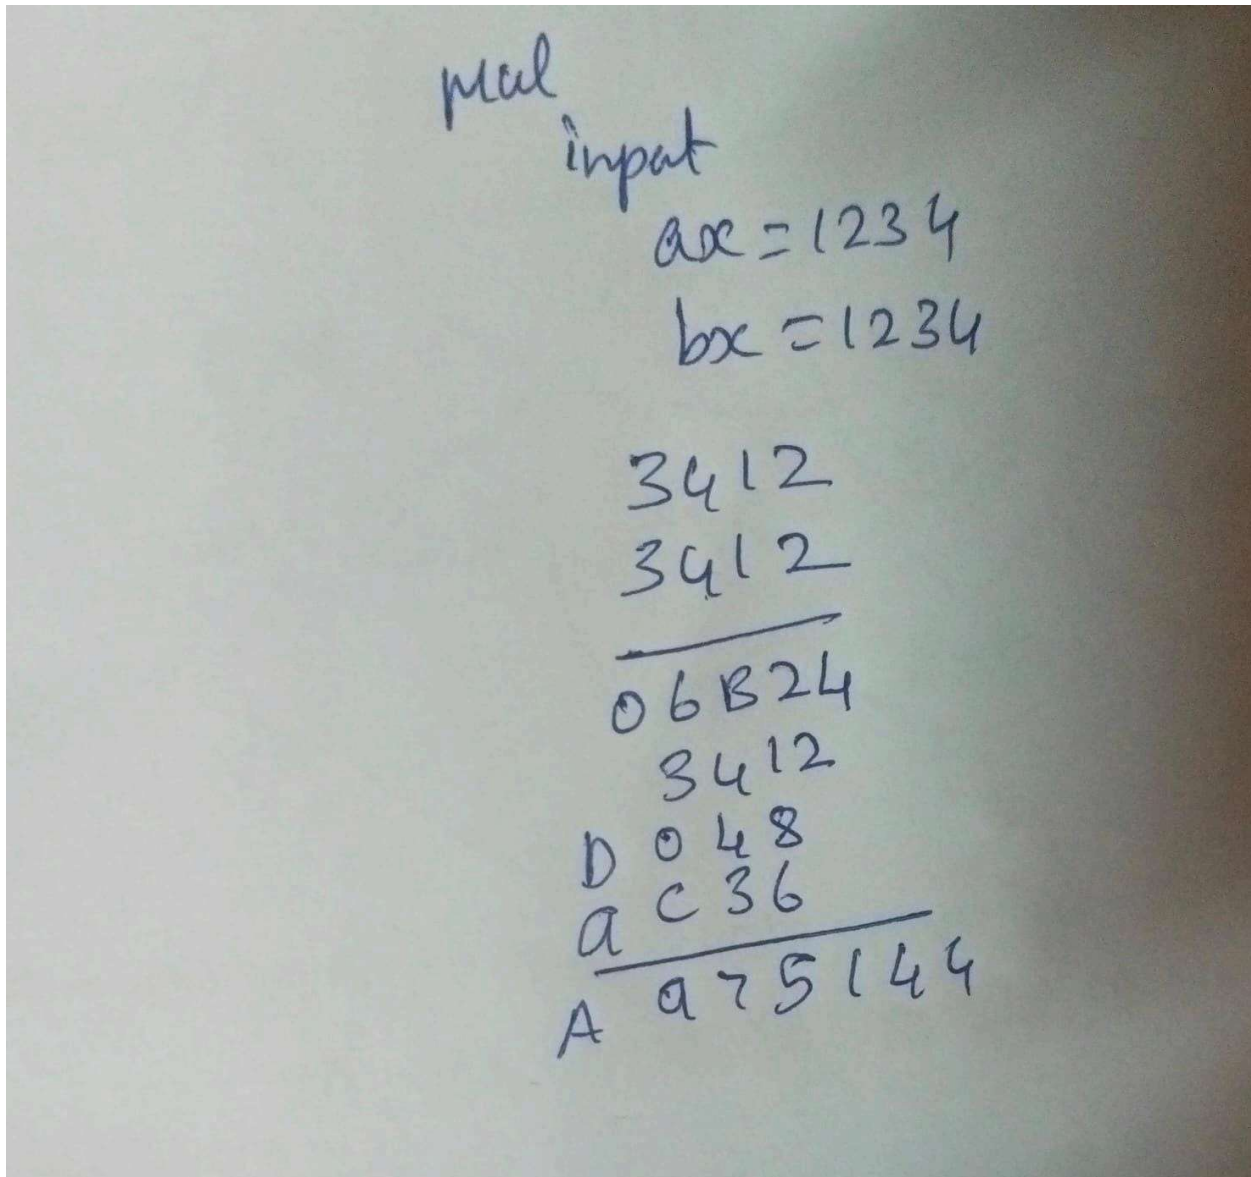 mul
input
ax = 1234
bx = 1234
3412
3412
06B24
3412
D 0 4 8
9 C 3 6
A 9 7 5 1 4 4